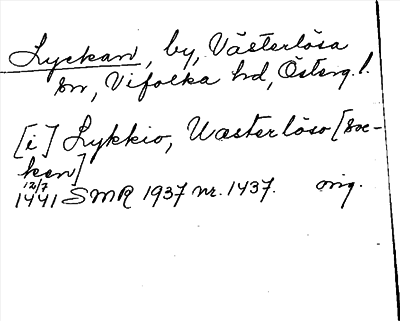 Lyckan, by, Västerlösa
sn, Vifolka hd, Österg. l.
[i] Lykkio, Wæsterløso [soc-
ken]
12/7
1441 SMR 1937 nr. 1437. orig.